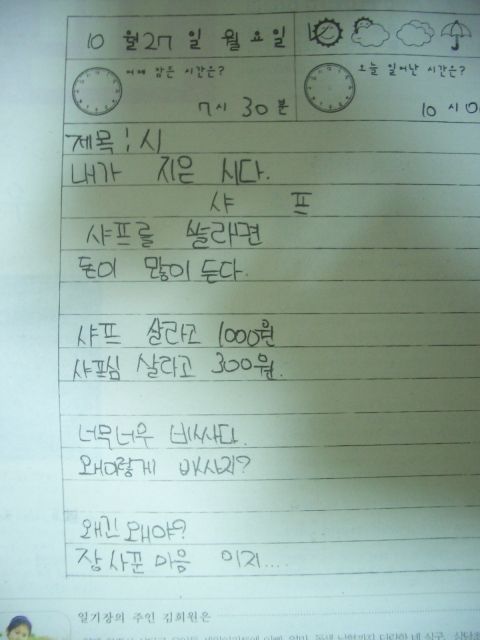 10 월 27 일 월 요일
어제 잠든 시간은?
7시 30분
오늘 일어난 시간은?
10 시 0
제목 : 시
내가 지은 시다.
샤 프
샤프를 쓸라면
돈이 많이 든다.
샤프 살라고 1000원
샤프심 살라고 300원.
너무너무 비싸다.
왜이렇게 비싸지?
왜긴 왜야?
장사꾼 마음 이지....
일기장의 주인 김희원은